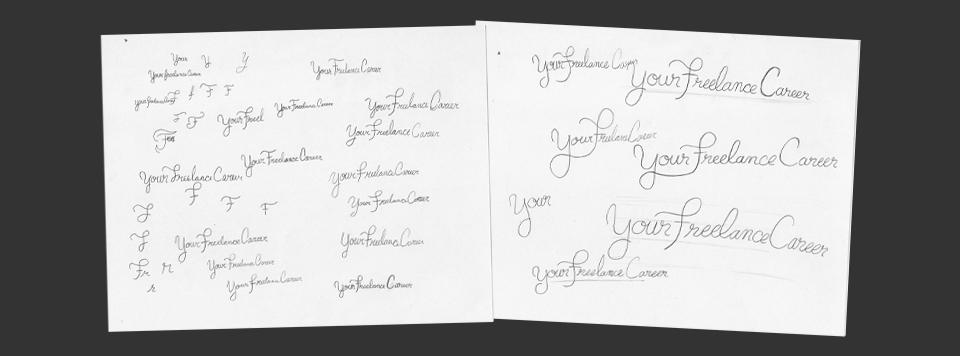 Your y Y
YourFreelanceCareer
YourFreelanceCareer
F f F F
YourFreelanceCareer
F F
YourFreel
YourFreelanceCareer
YourFreelanceCareer
YourFreelanceCareer
YourFreelanceCareer
YourFreelanceCareer
F
F F
YourFreelanceCareer
YourFreelanceCareer
YourFreelanceCareer
YourFreelanceCareer
Fr r
r
YourFreelanceCareer
YourFreelanceCareer
YourFreelanceCareer
YourFreelance Career
YourFreelance Career
YourFreelanceCareer
YourFreelance Career
Your
YourFreelanceCareer
YourFreelance Career